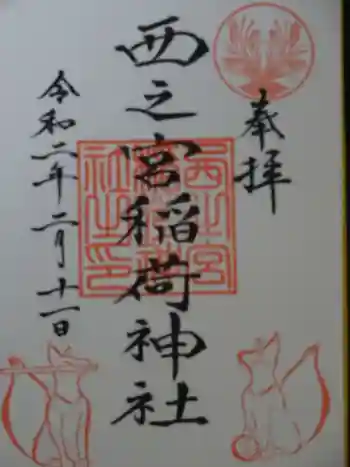 奉拝
西之宮稲荷神社
西之宮稲荷神社之印
令和二年二月十一日